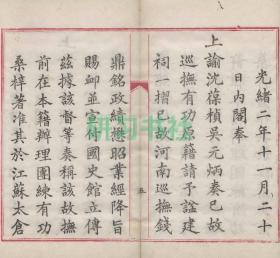 光緒二年十一月二十
日內閣奉
上諭沈葆楨吳元炳奏已故
巡撫有功原籍請予謚建
祠一摺已故河南巡撫錢
五
鼎銘政績懋昭業經降旨
賜卹並宣付國史館立傳
茲據該督等奏稱該故撫
前在本籍辦理團練有功
桑梓著准其於江蘇太倉